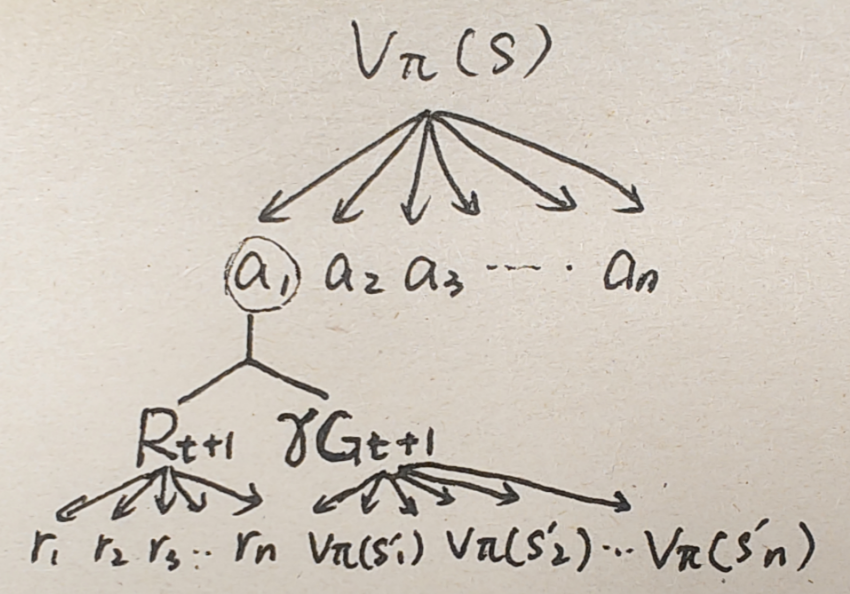 Vπ(S)
a₁ a₂ a₃ ---- · aₙ
Rt+1 γGt+1
r₁ r₂ r₃ ·· rₙ Vπ(s'₁) Vπ(s'₂) ··· Vπ(s'ₙ)